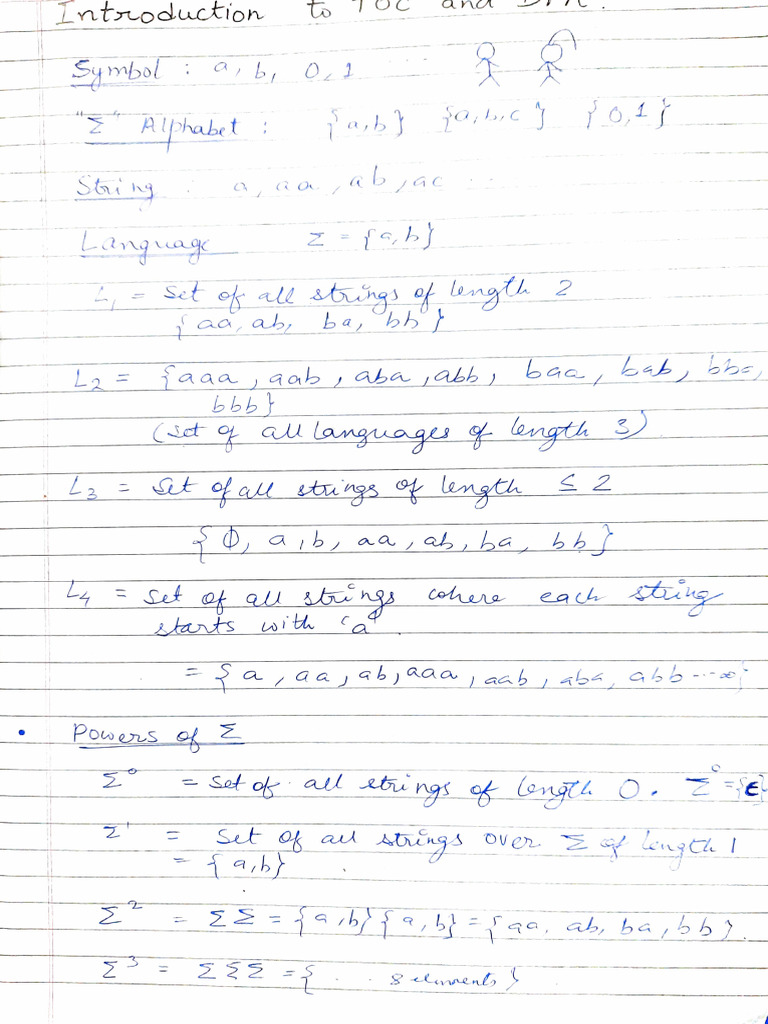 Introduction to TOC and DFA.
Symbol : a, b, 0, 1
"Σ" Alphabet : {a,b} {a,b,c} {0,1}
String : a, aa, ab, ac ...
Language Σ = {a,b}
L₁ = Set of all strings of length 2
{aa, ab, ba, bb}
L₂ = {aaa, aab, aba, abb, baa, bab, bba,
bbb}
(set of all languages of length 3)
L₃ = Set of all strings of length ≤ 2
{Φ, a, b, aa, ab, ba, bb}
L₄ = Set of all strings where each string
starts with 'a'.
= {a, aa, ab, aaa, aab, aba, abb ... ∞}
• Powers of Σ
Σ⁰ = Set of all strings of length 0. Σ⁰={ε}
Σ¹ = Set of all strings over Σ of length 1
= {a,b}
Σ² = ΣΣ = {a,b}{a,b} = {aa, ab, ba, bb}.
Σ³ = ΣΣΣ = { . . 8 elements}